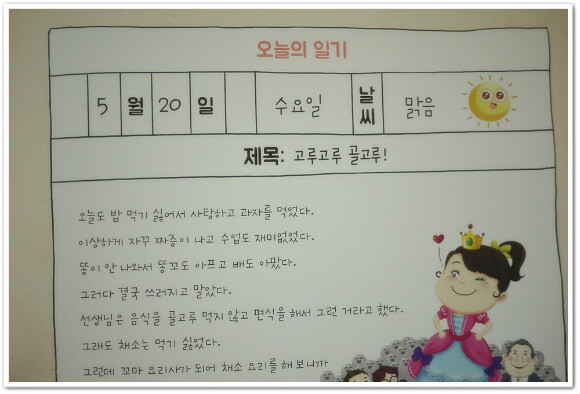 오늘의 일기
5 월 20 일 수요일 날씨 맑음
제목: 고루고루 골고루!
오늘도 밥 먹기 싫어서 사탕하고 과자를 먹었다.
이상하게 자꾸 짜증이 나고 수업도 재미없었다.
똥이 안 나와서 똥꼬도 아프고 배도 아팠다.
그러다 결국 쓰러지고 말았다.
선생님은 음식을 골고루 먹지 않고 편식을 해서 그런 거라고 했다.
그래도 채소는 먹기 싫었다.
그런데 꼬마 요리사가 되어 채소 요리를 해 보니까